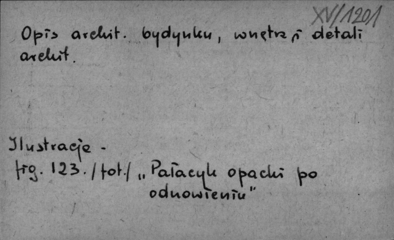 XV/1201
Opis archit. budynku, wnętrz i detali
archit.
Ilustracje -
fig. 123. /fot./ „Pałacyk opacki po
odnowieniu"